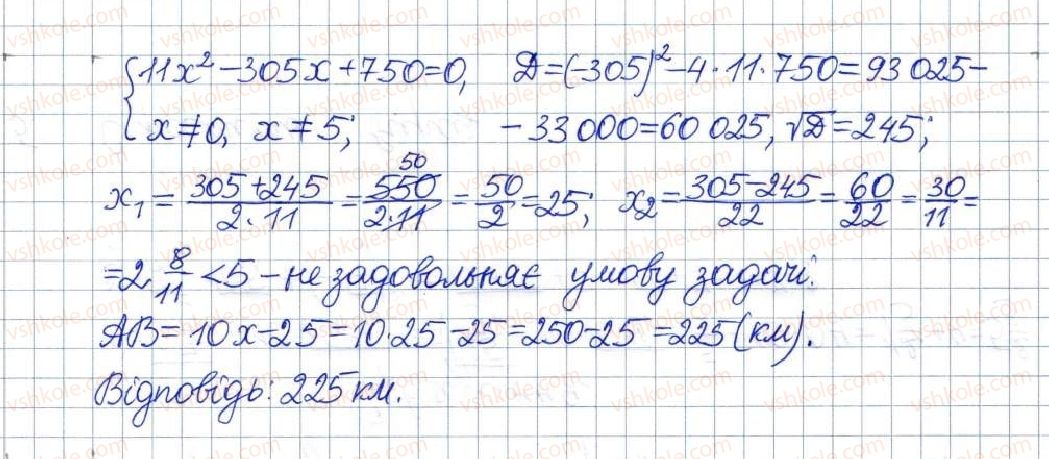 {11x² − 305x + 750 = 0, D = (−305)² − 4 · 11 · 750 = 93 025 −
x ≠ 0, x ≠ 5; − 33 000 = 60 025, √D = 245;
x₁ = (305 + 245)/(2 · 11) = 550/(2 · 11) 50 = 50/2 = 25; x₂ = (305 − 245)/22 = 60/22 = 30/11 =
= 2 8/11 < 5 – не задовольняє умову задачі.
AB = 10x − 25 = 10 · 25 − 25 = 250 − 25 = 225 (км).
Відповідь: 225 км.
vshkole.com